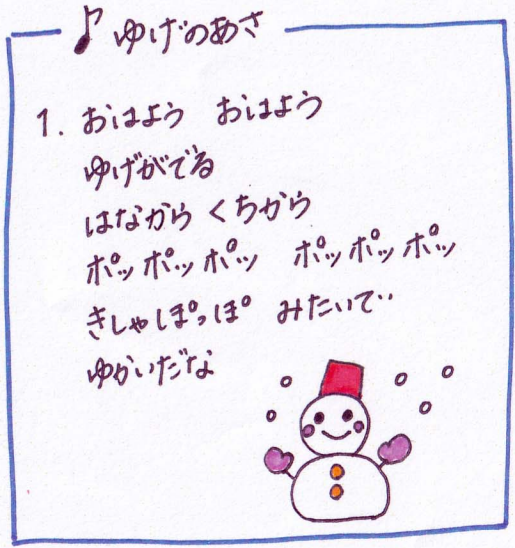 ♪ ゆげのあさ
1. おはよう おはよう
ゆげがでる
はなから くちから
ポッポッポッ ポッポッポッ
きしゃぽっぽ みたいで
ゆかいだな